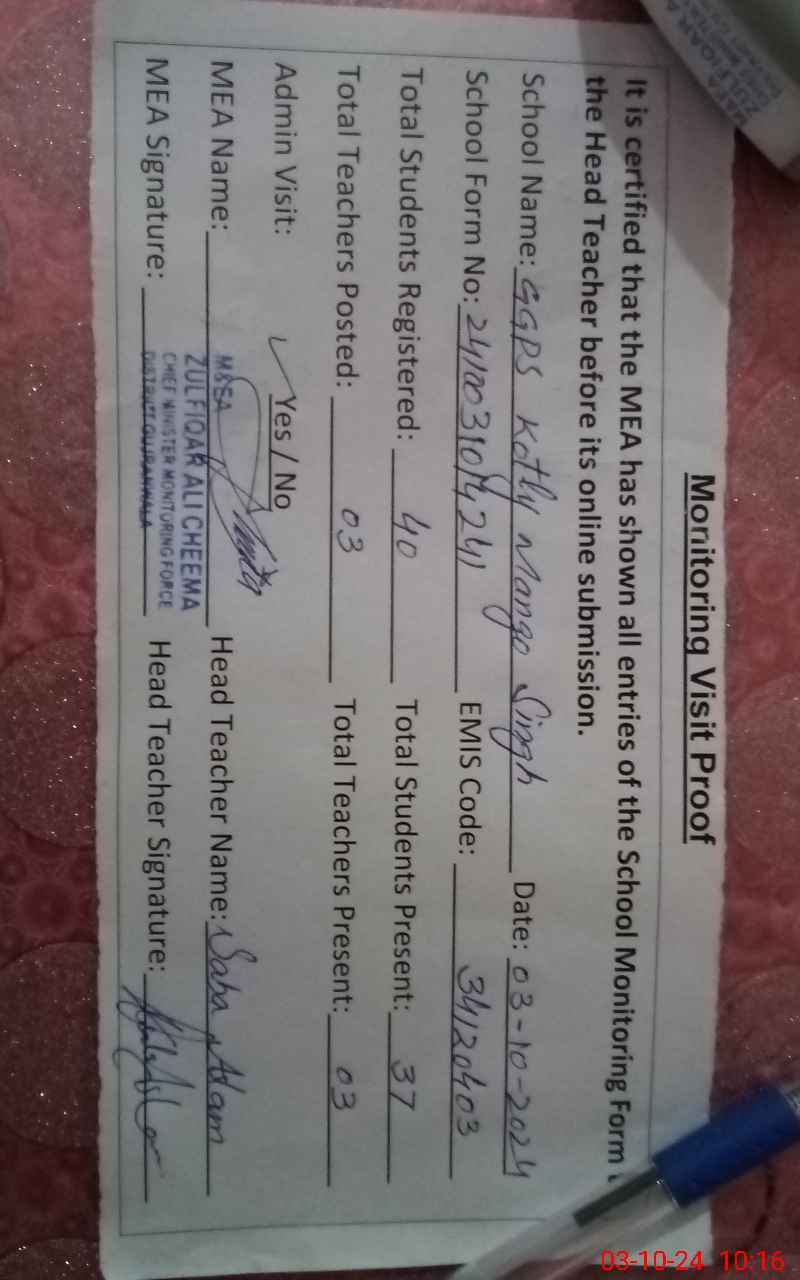 Monitoring Visit Proof
It is certified that the MEA has shown all entries of the School Monitoring Form
the Head Teacher before its online submission.
School Name: GGPS Kotly Mango Singh Date: 03-10-2024
School Form No: EMIS Code: 34120403
Total Students Registered: 40 Total Students Present: 37
Total Teachers Posted: 03 Total Teachers Present: 03
Admin Visit: ✓ Yes / No
MEA Name: Head Teacher Name: Saba Adam
MEA Signature: Head Teacher Signature:
ZULFIQAR ALI CHEEMA
CHIEF MINISTER MONITORING FORCE
DISTRICT GUJRANWALA
ZULFIQAR A
03-10-24 10:16